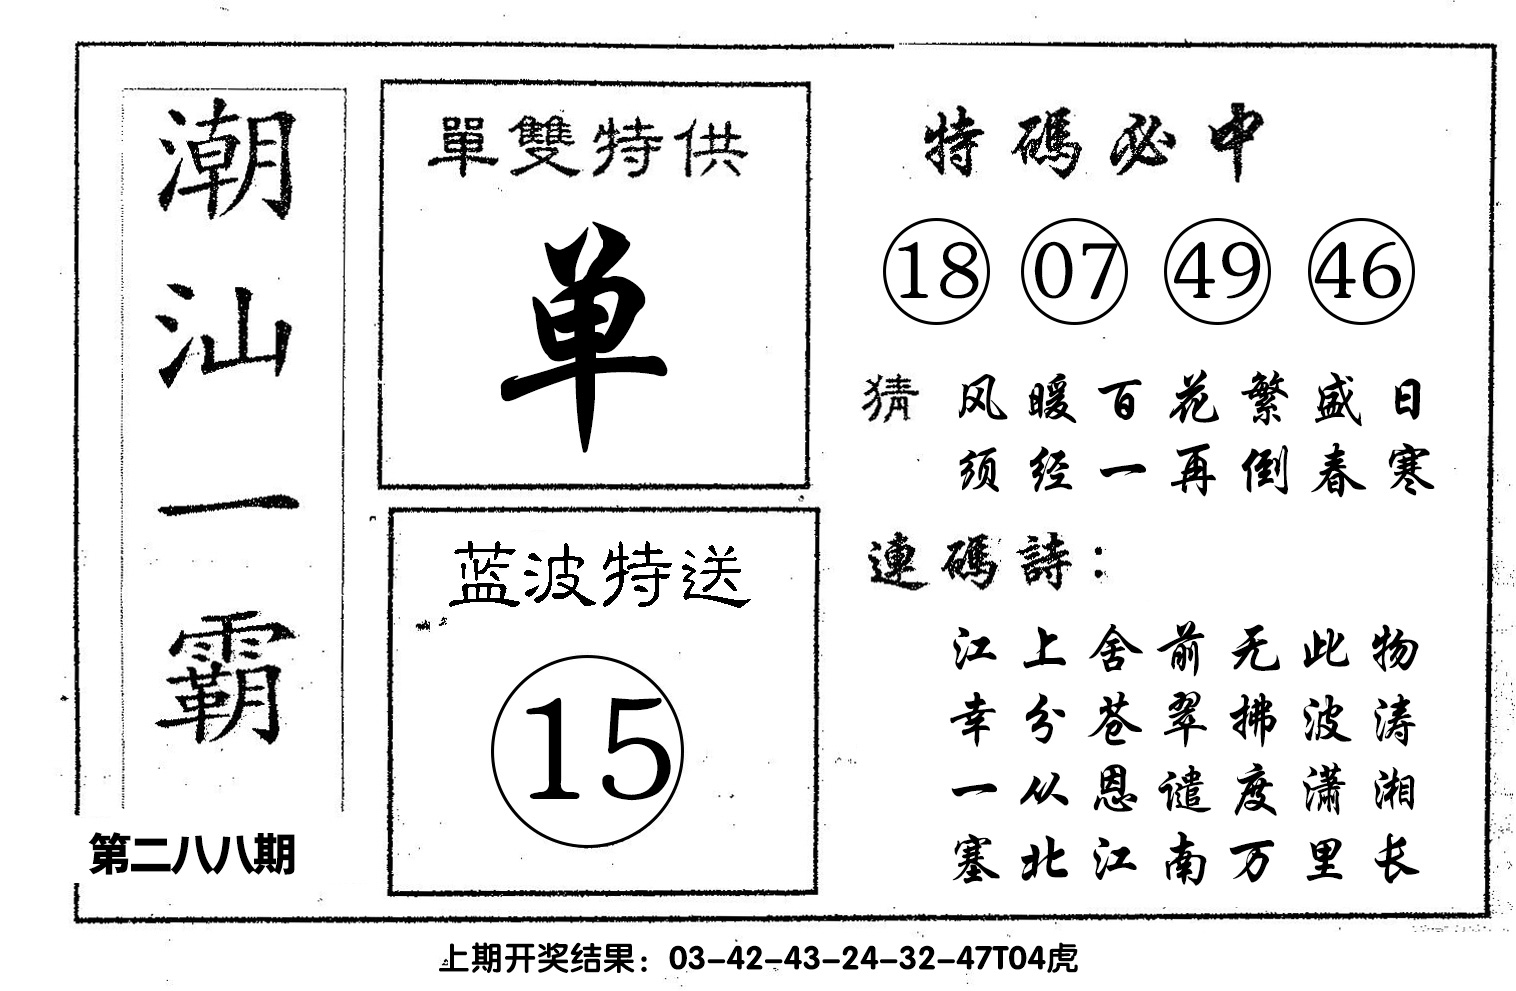 潮汕一霸
第二八八期
單雙特供
单
蓝波特送
15
特碼必中
18 07 49 46
猜 风暖百花繁盛日
须经一再倒春寒
連碼詩：
江上舍前无此物
幸分苍翠拂波涛
一从恩谴度潇湘
塞北江南万里长
上期开奖结果：03-42-43-24-32-47T04虎